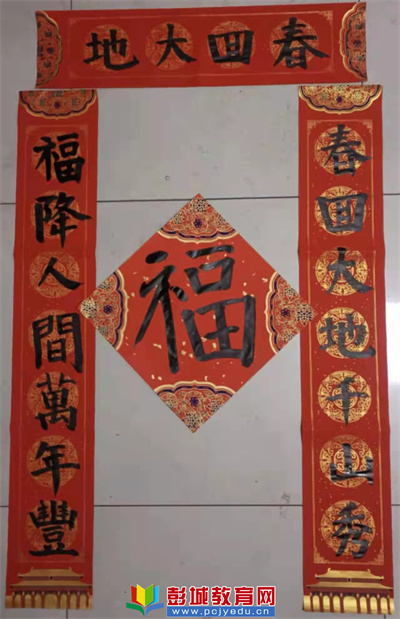 春回大地
春回大地千山秀
福降人間萬年豐
福
彭城教育网
www.pcjyedu.cn